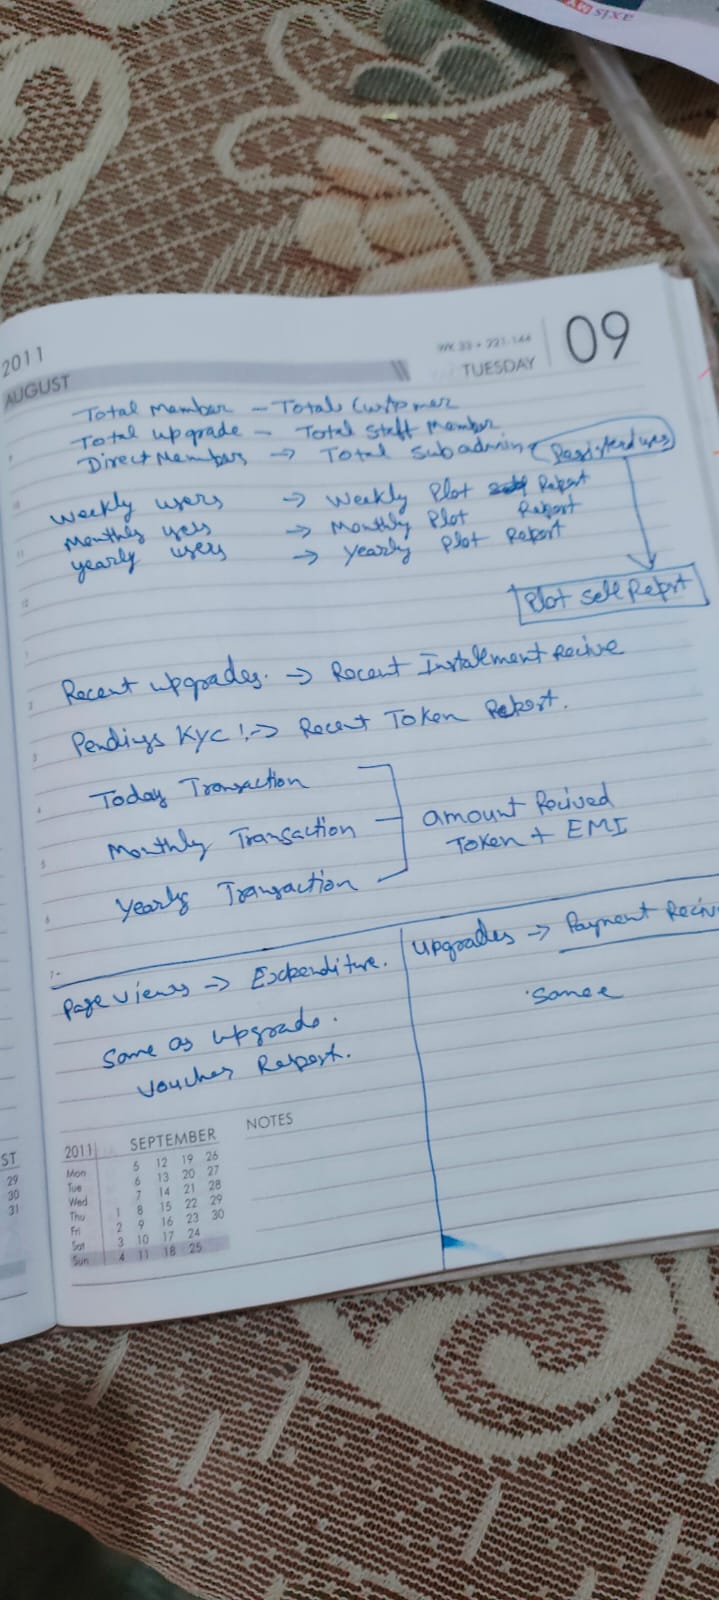 axis MY
2011
AUGUST
WK 33 • 221-144
TUESDAY
09
Total Member - Total Customer
Total upgrade - Total Staff Member
Direct Members → Total Sub admin
Weekly users → Weekly Plot Report
Monthly users → Monthly Plot Report
yearly users → Yearly Plot Report
Plot Sell Report
Recent upgrades. → Recent Installment Recive
Pendings KYC !.→ Recent Token Report.
Today Transaction
Monthly Transaction
Yearly Transaction
amount Recived
Token + EMI
Page views → Expenditure.
Same as upgrade.
Voucher Report.
upgrades → Payment Reciv
Same
2011 SEPTEMBER
Mon 5 12 19 26
Tue 6 13 20 27
Wed 7 14 21 28
Thu 1 8 15 22 29
Fri 2 9 16 23 30
Sat 3 10 17 24
Sun 4 11 18 25
NOTES
ST
29
30
31